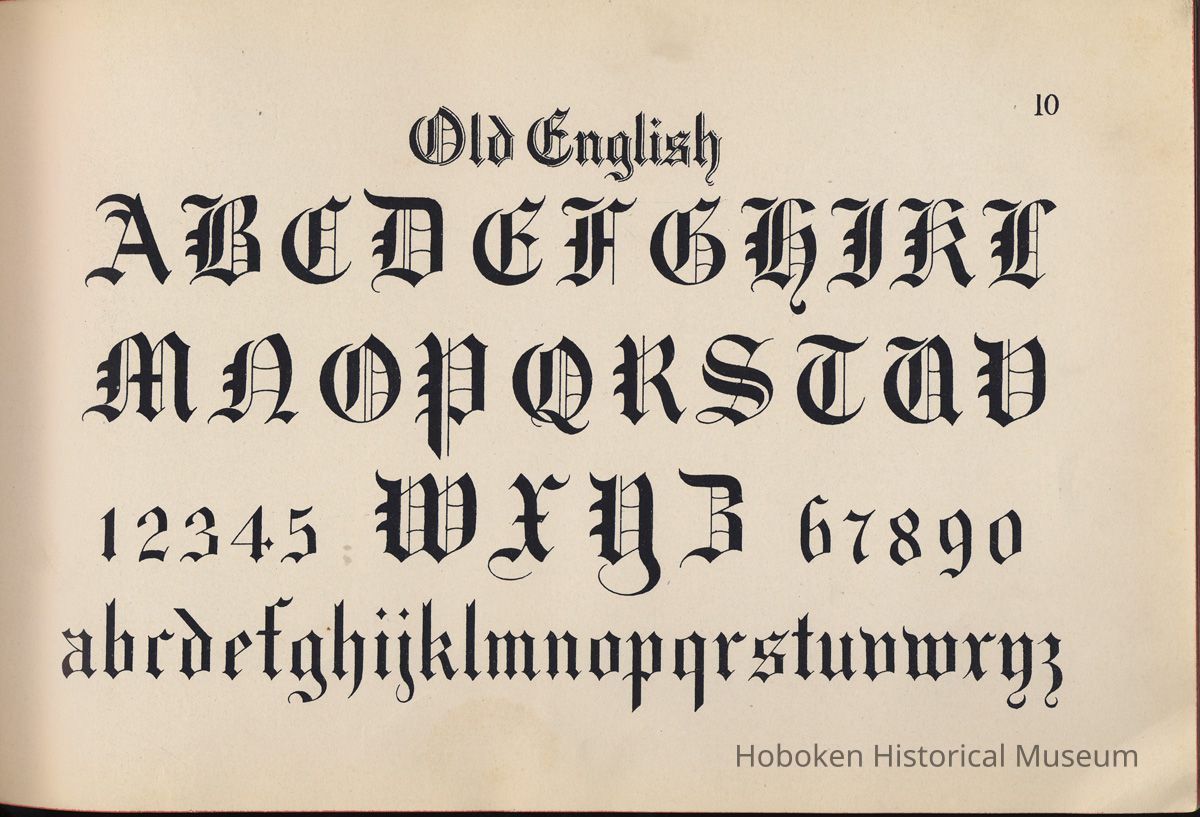 10
Old English
A B C D E F G H I K L
M N O P Q R S T U V
1 2 3 4 5 W X Y Z 6 7 8 9 0
a b c d e f g h i j k l m n o p q r s t u v w x y z
Hoboken Historical Museum